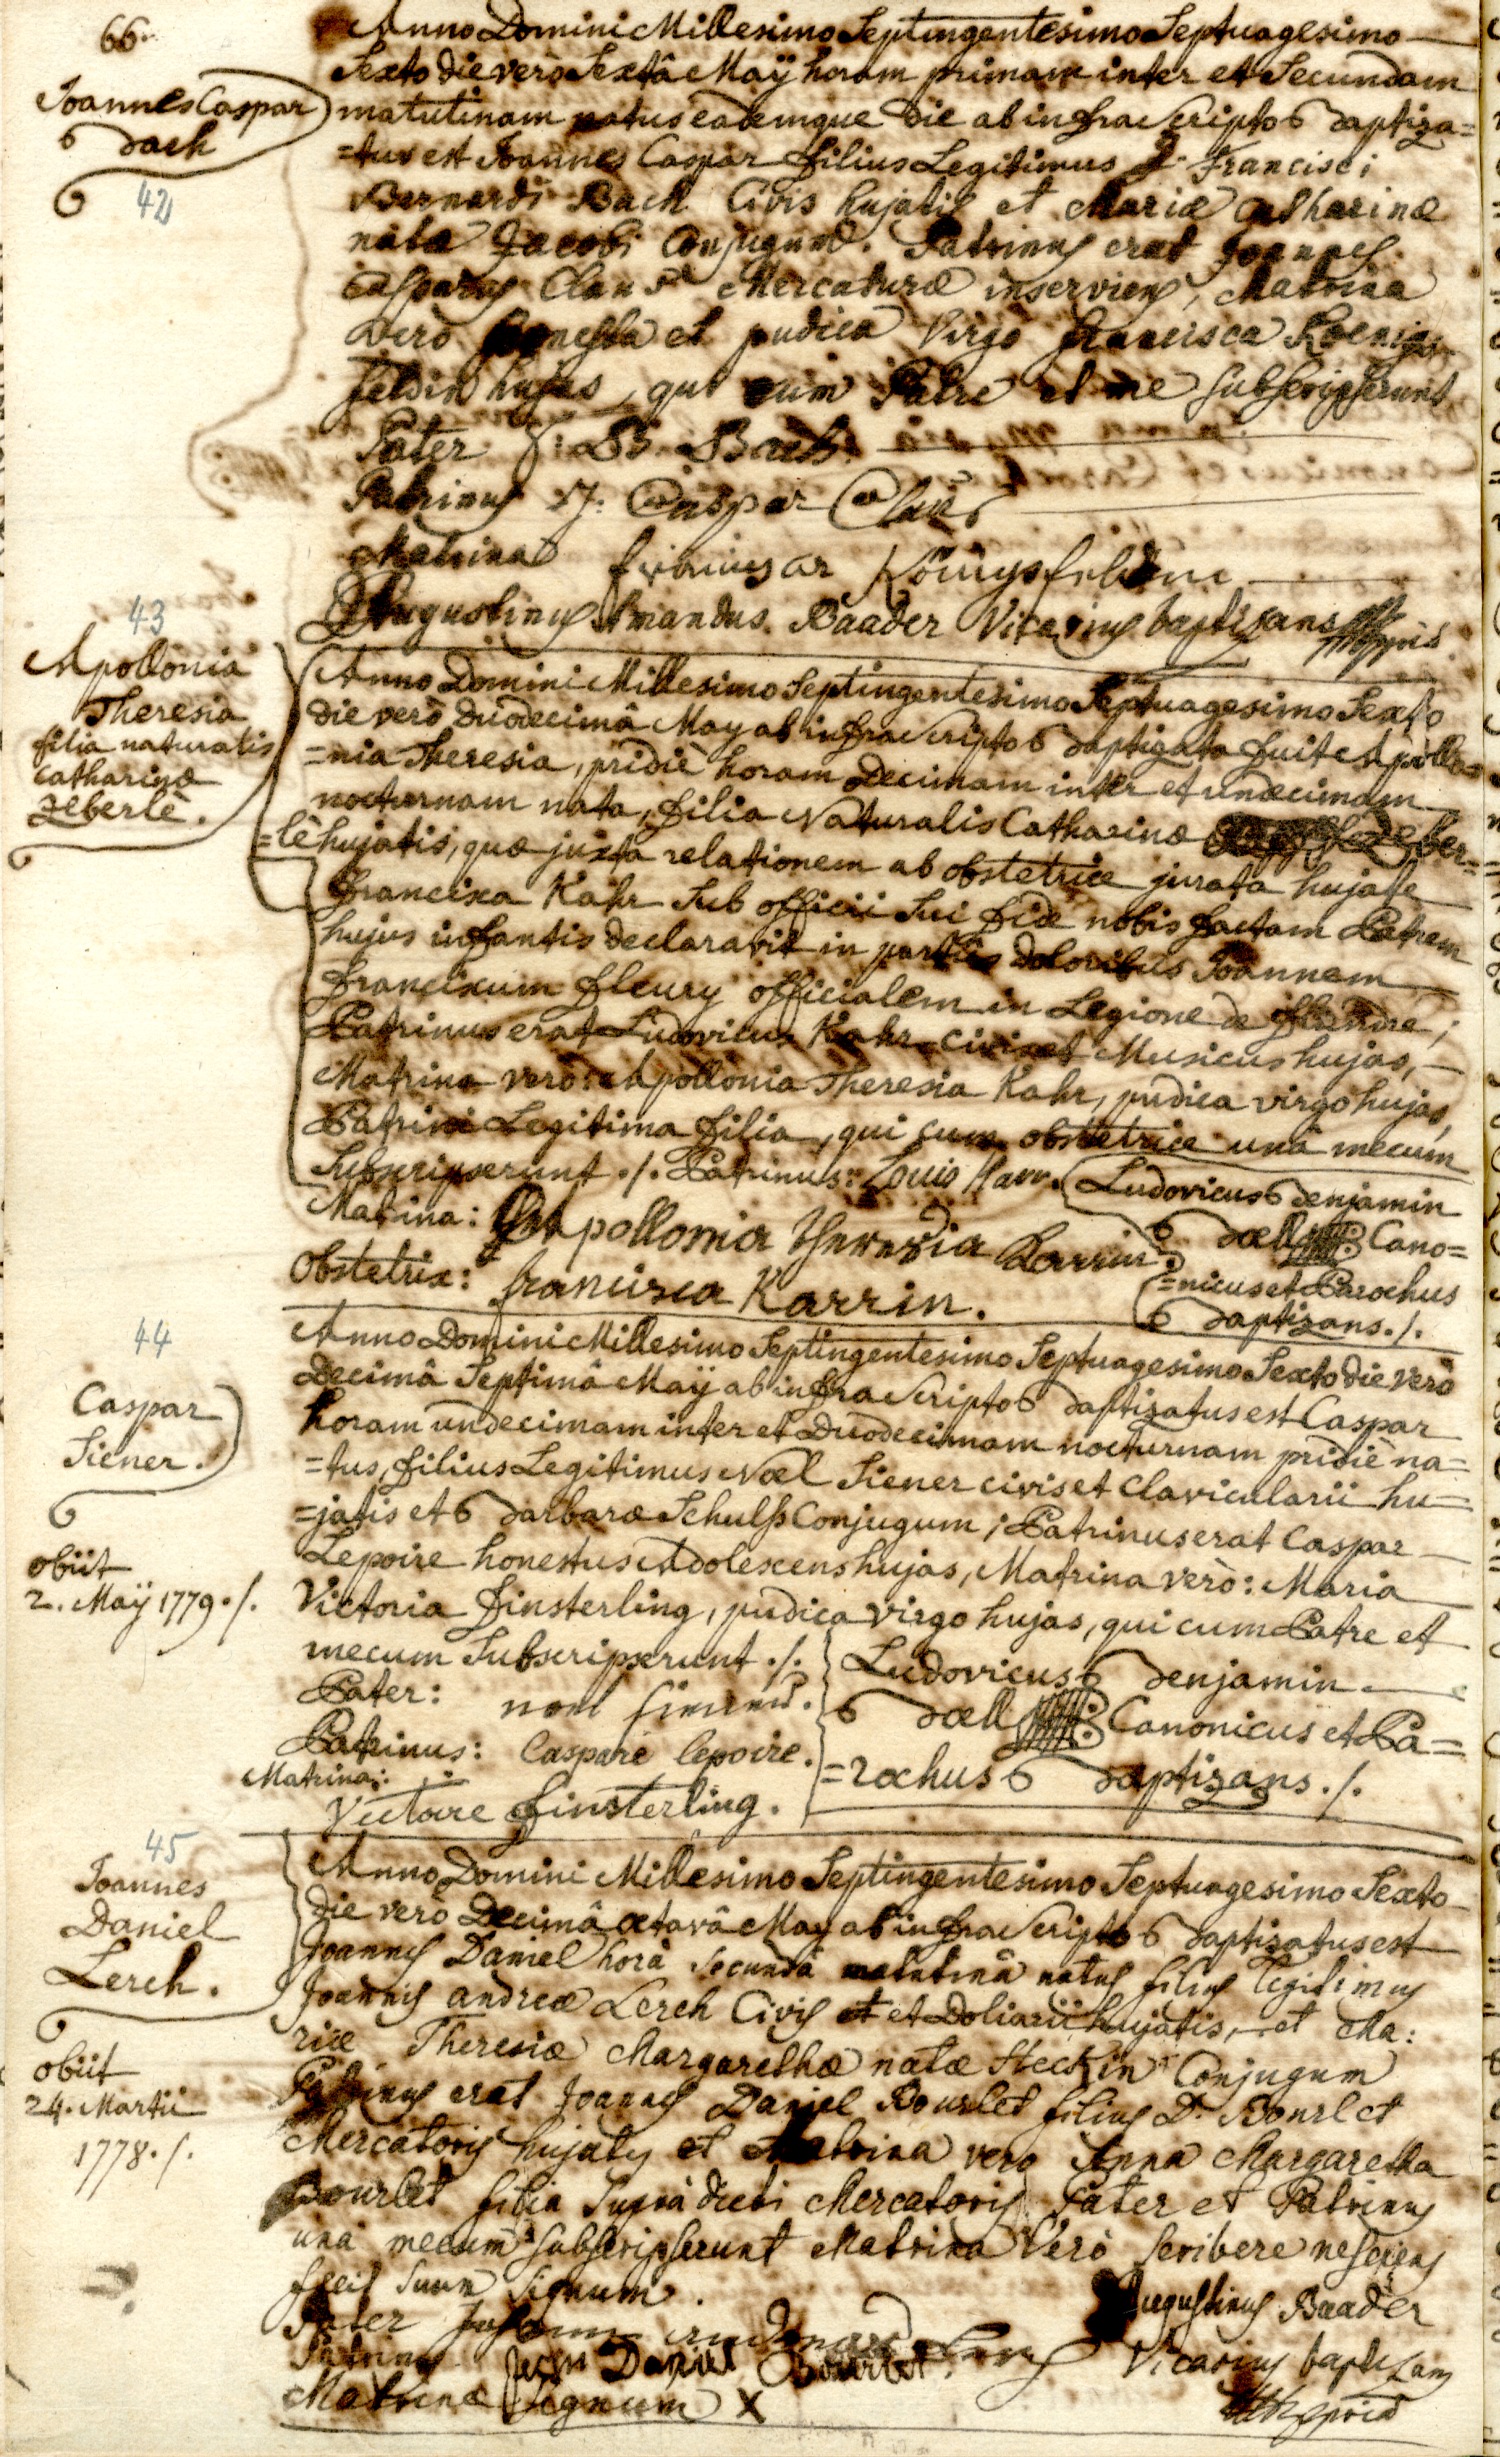 66.
Joannes Caspar
Bach
42
Anno Domini Millesimo Septingentesimo Septuagesimo
Sexto die verò Sextâ Maÿ horam primam inter et Secundam
matutinam natus eademque die ab infra Scripto Baptiza=
=tus est Joannes Caspar filius Legitimus D. Francisci
Bernardi Bach Civis hujatis et Mariæ Catharinæ
natæ Jacobi Conjugum. Patrinus erat Joannes
Casparus Claus Mercaturæ inserviens, Matrina
verò honesta et pudica Virgo Francisca Koenigs
feldin hujas, qui cum Patre et me subscripserunt
Pater F: B. Bach.
Patrinus J: Caspar Claus
Matrina Königsfeldin
Augustinus Amandus Baader Vicarius baptizans mppriâ
43
Apollonia
Theresia
filia naturalis
Catharinæ
Zeberlè.
Anno Domini Millesimo Septingentesimo Septuagesimo Sexto
die verò duodecimâ May ab infra Scripto Baptizata fuit Apollo=
=nia Theresia, pridiè horam Decimam inter et undecimam
nocturnam nata, filia Naturalis Catharinæ Zeber=
=lè hujatis, quæ juxta relationem ab obstetrice jurata hujate
Francisca Kahr Sub officii Sui fide nobis factam Patrem
hujus infantis declaravit in partûs doloribus Joannem
Franciscum Fleury officialem in Legione de flandre;
Patrinus erat Ludovicus Kahr civis et Musicus hujas,
Matrina verò: Apollonia Theresia Kahr, pudica virgo hujas,
Patrini Legitima filia, qui cum obstetrice unà mecum
Subscripserunt ./. Patrinus: Louis Karr.
Matrina: Apollonia theresia Karrin
Obstetrix: francisca Karrin.
Ludovicus Benjamin
Boell Cano=
=nicus et Parochus
Baptizans ./.
44
Caspar
Siener.
obiit
2. Maÿ 1779 ./.
Anno Domini Millesimo Septingentesimo Septuagesimo Sexto die verò
Decimâ Septimâ Maÿ ab infra Scripto Baptizatus est Caspar
horam undecimam inter et Duodecimam nocturnam pridiè na=
=tus, filius Legitimus Noel Siener civis et clavicularii hu=
=jatis et Barbaræ Schulss Conjugum; Patrinus erat Caspar
Lepoire honestus Adolescens hujas, Matrina verò: Maria
Victoria Finsterling, pudica virgo hujas, qui cum Patre et
mecum Subscripserunt ./.
Pater: noel
Patrinus: Caspare lepoire.
Matrina:
Victoire Finsterling.
Ludovicus Benjamin
Boell Canonicus et Pa=
=rochus Baptizans ./.
45
Joannes
Daniel
Lerch.
obiit
24. Martii
1778 ./.
Anno Domini Millesimo Septingentesimo Septuagesimo Sexto
die verò Decimâ octavâ May ab infra Scripto Baptizatus est
Joannes Daniel horâ secundâ matutinâ natus filius legitimus
Joannis andreæ Lerch Civis et et Doliarii hujatis, et Ma:
riæ Theresiæ Margarethæ natæ Steckin Conjugum
Patrinus erat Joannes Daniel Bourlet filius D. Bourlet
Mercatoris hujatis et Matrina vero Anna Margaretha
Bourlet filia Supra dicti Mercatoris Pater et Patrinus
unà mecum subscripserunt Matrina Verò scribere nesciens
fecit suum signum.
Pater
Patrinus Jean Daniel Bourlet.
Matrinæ Signum X
Augustinus Baader
Vicarius baptizans
mppriâ